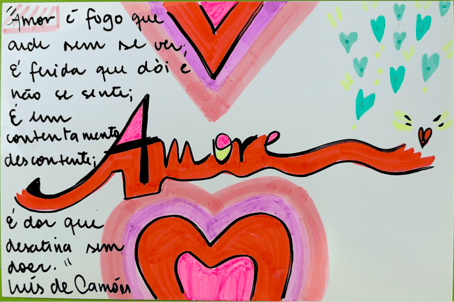 Amor é fogo que
arde sem se ver;
É ferida que dói e
não se sente;
É um
contentamento
descontente;
Amore
é dor que
desatina sem
doer."
Luís de Camões